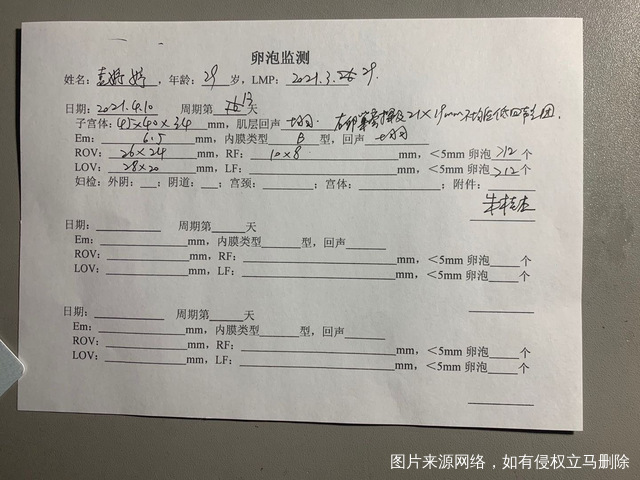 卵泡监测
姓名:袁婷婷,年龄:29 岁,LMP:2021.3.29.
日期:2021.4.10 周期第13天
子宫体:45×40×34 mm,肌层回声 均匀. 右卵巢旁探及21×19mm不均质低回声包团.
Em:6.5 mm,内膜类型 B 型,回声 均匀
ROV:26×24 mm,RF:10×8 mm,<5mm 卵泡 >12 个
LOV:28×20 mm,LF: mm,<5mm 卵泡 >12 个
妇检:外阴: ;阴道: ;宫颈: ;宫体: ;附件:
日期: 周期第 天
Em: mm,内膜类型 型,回声
ROV: mm,RF: mm,<5mm 卵泡 个
LOV: mm,LF: mm,<5mm 卵泡 个
日期: 周期第 天
Em: mm,内膜类型 型,回声
ROV: mm,RF: mm,<5mm 卵泡 个
LOV: mm,LF: mm,<5mm 卵泡 个
图片来源网络,如有侵权立马删除